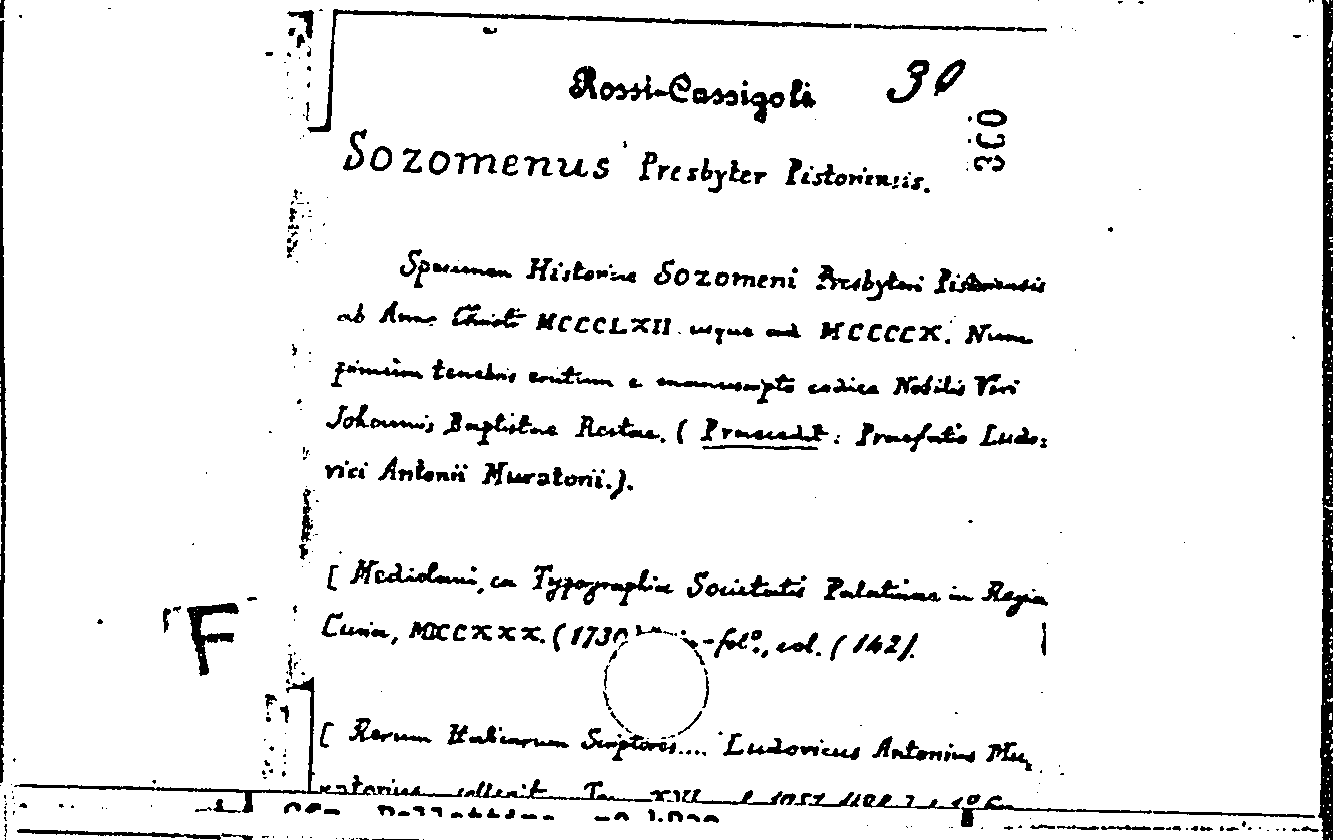 Rossi-Cassigoli 30
360
Sozomenus Presbyter Pistoriensis.
Specimen Historiae Sozomeni Presbyteri Pistoriensis
ab Anno Christi MCCCLXII usque ad MCCCCX. Nunc
primum tenebris erutum e manuscripto codice Nobilis Viri
Johannis Baptistae Rectae. ( Praecedit : Praefatio Ludo=
vici Antonii Muratorii.).
[ Mediolani, ex Typographia Societatis Palatinae in Regia
Curia, MDCCXXX. ( 1730 -fol°., col. ( 142).
F
[ Rerum Italicarum Scriptores.... Ludovicus Antonius Mu=
ratorius collegit. XVI